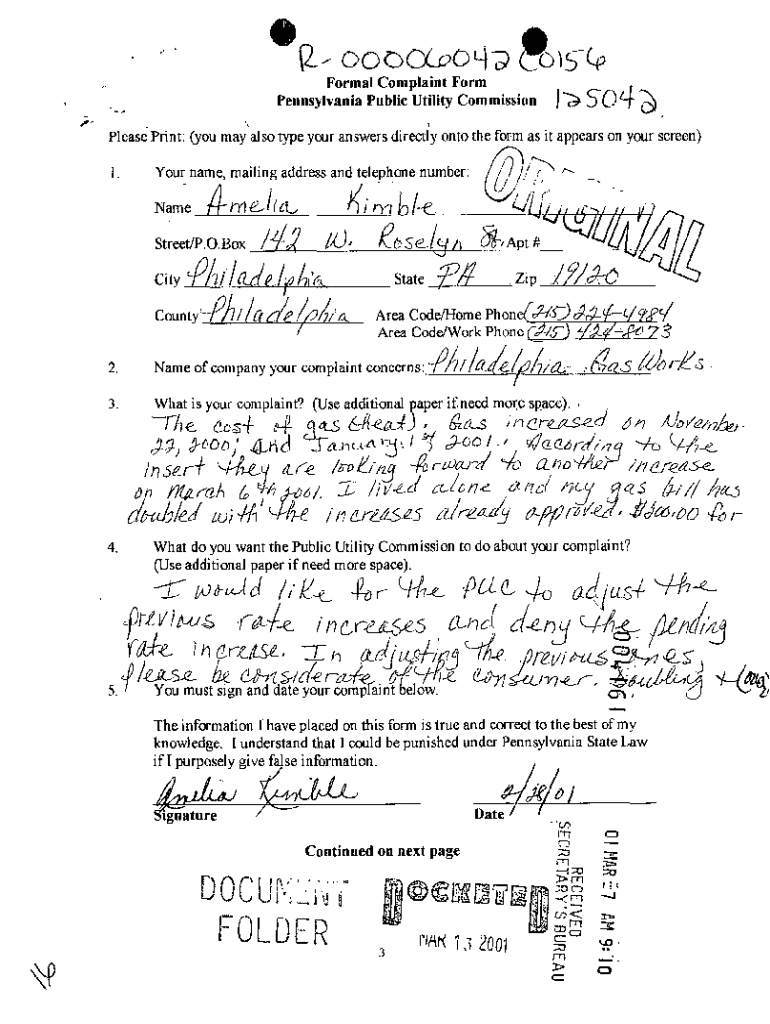 R-00006042C0156
Formal Complaint Form
Pennsylvania Public Utility Commission 125042
Please Print: (you may also type your answers directly onto the form as it appears on your screen)
ORIGINAL
1. Your name, mailing address and telephone number:
Name Amelia Kimble
Street/P.O.Box 142 W. Roselyn St. Apt #
City Philadelphia State PA Zip 19120
County Philadelphia Area Code/Home Phone (215) 224-4984
Area Code/Work Phone (215) 424-8073
2. Name of company your complaint concerns: Philadelphia Gas Works
3. What is your complaint? (Use additional paper if need more space).
The cost of gas (heat). Gas increased on November
22, 2000, and January 1st 2001. According to the
insert they are looking forward to another increase
on March 6th 2001. I lived alone and my gas bill has
doubled with the increases already approved. $300.00 for
4. What do you want the Public Utility Commission to do about your complaint?
(Use additional paper if need more space).
I would like for the PUC to adjust the
previous rate increases and deny the pending
rate increase. In adjusting the previous ones,
please be considerate of the consumer. Doubling +
5. You must sign and date your complaint below.
The information I have placed on this form is true and correct to the best of my
knowledge. I understand that I could be punished under Pennsylvania State Law
if I purposely give false information.
Amelia Kimble 2/28/01
Signature Date
Continued on next page
DOCUMENT
FOLDER
DOCKETED
MAR 13 2001
3
01 MAR -7 AM 9:10
RECEIVED
SECRETARY'S BUREAU
16